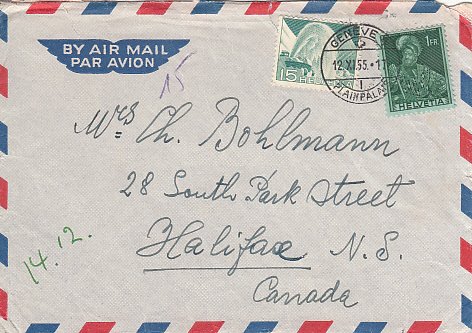 BY AIR MAIL
PAR AVION
15
15
GENEVE
12.XI.55.-17
1
PLAINPALAIS
1FR
HELVETIA
Mrs Ch. Bohlmann
28 South Park Street
Halifax N.S.
Canada
14.12.